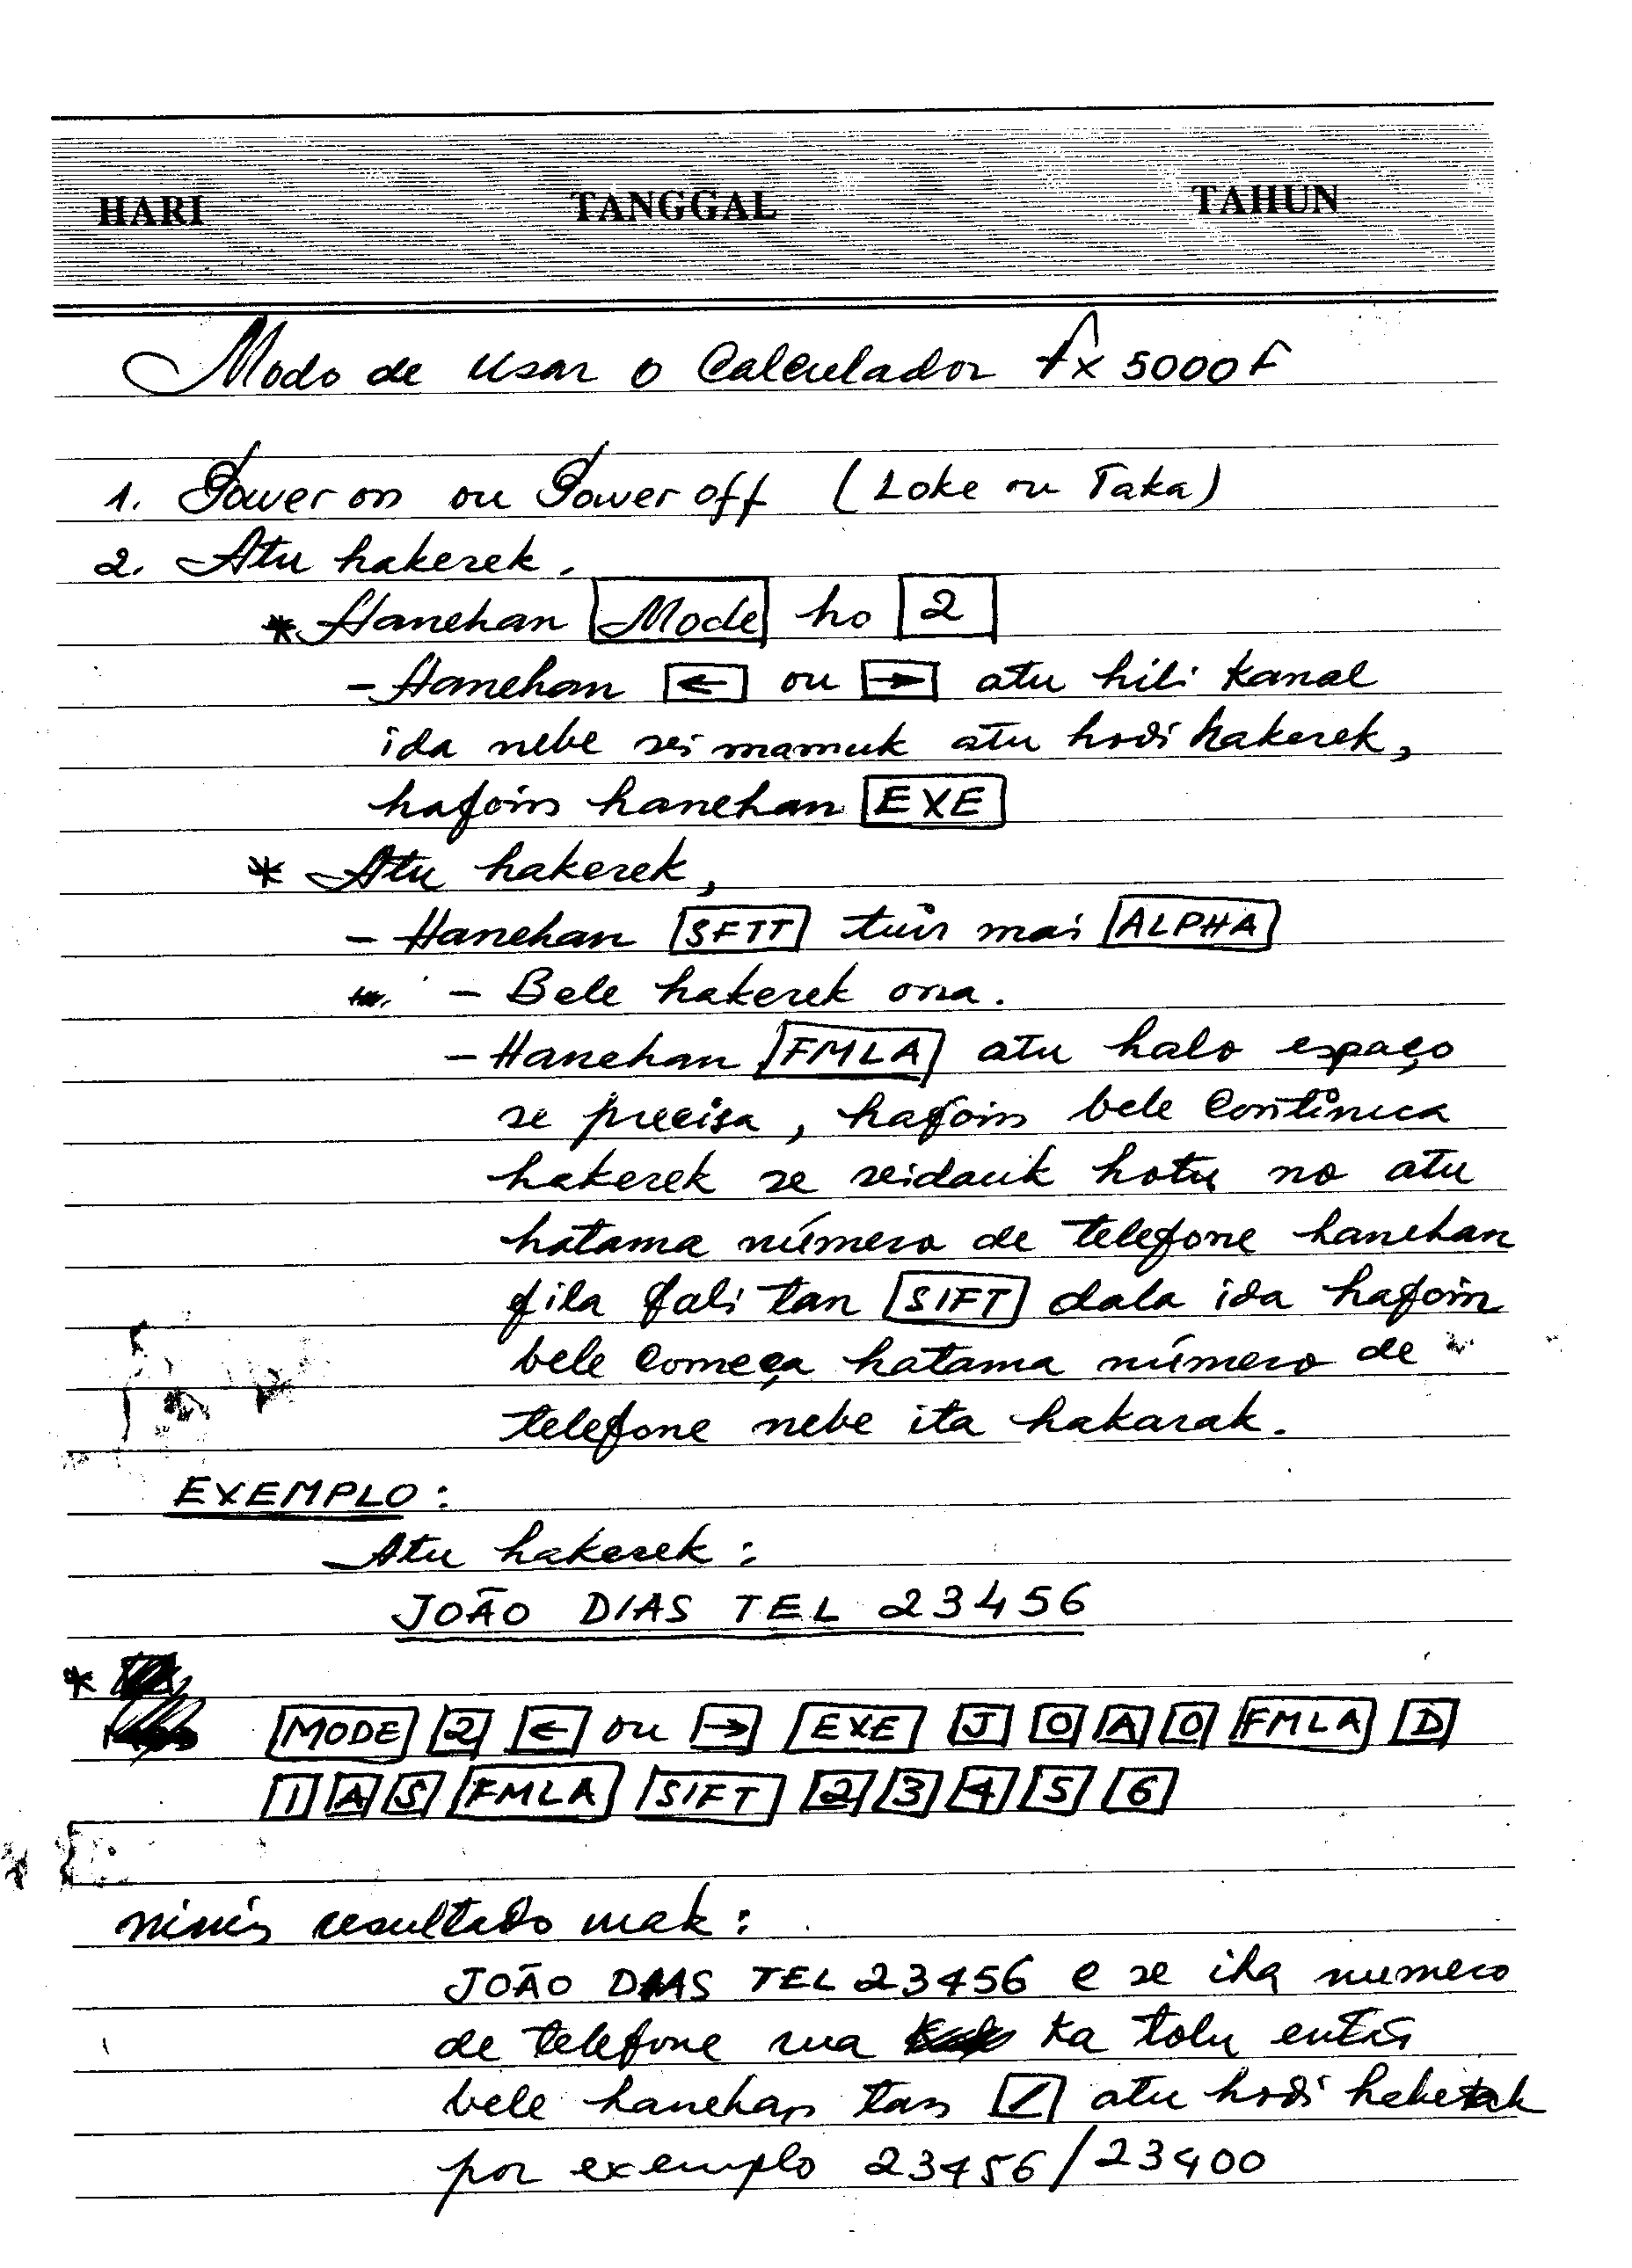 HARI TANGGAL TAHUN
Modo de usar o Calculador fx 5000F
1. Power on ou Power off (Loke ou Taka)
2. Atu hakerek.
* Hanehan Mode ho 2
- Hanehan ← ou → atu hili Kanal
ida nebe sei mamuk atu hodi hakerek,
hafoin hanehan EXE
* Atu hakerek,
- Hanehan SFTT tuir mai ALPHA
- Bele hakerek ona.
- Hanehan FMLA atu halo espaço
se precisa, hafoin bele Continua
hakerek se seidauk hotu no atu
hatama número de telefone hanehan
fila fali tan SIFT dala ida hafoin
bele Começa hatama número de
telefone nebe ita hakarak.
EXEMPLO:
Atu hakerek:
JOÃO DIAS TEL 23456
*
MODE 2 ← ou → EXE J O A O FMLA D
I A S FMLA SIFT 2 3 4 5 6
resultado mak:
JOÃO DIAS TEL 23456 e se iha numero
de telefone rua Ka tolu entãs
bele hanehan tan / atu hodi haketak
por exemplo 23456/23400